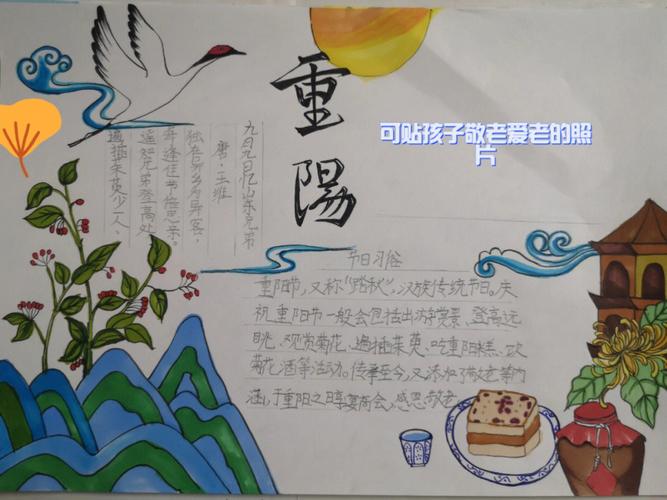 重陽
可贴孩子敬老爱老的照
片
九月九日忆山东兄弟
唐·王维
独在异乡为异客，
每逢佳节倍思亲。
遥知兄弟登高处
遍插茱萸少一人。
节日习俗
重阳节，又称“踏秋”，汉族传统节日。庆
祝重阳节一般会包括出游赏景、登高远
眺、观赏菊花、遍插茱萸、吃重阳糕、饮
菊花酒等活动。传承至今，又添加了敬老等内
涵，于重阳之日享宴高会，感恩敬老